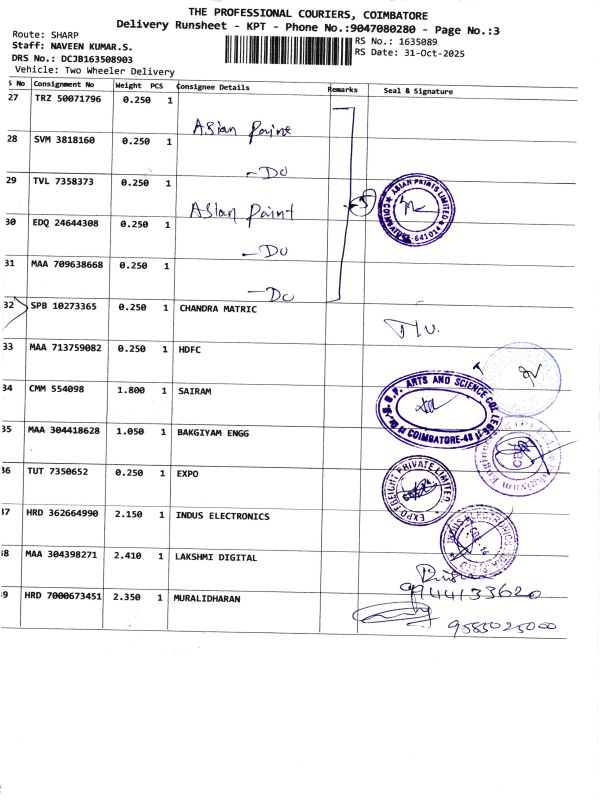 THE PROFESSIONAL COURIERS, COIMBATORE
Delivery Runsheet - KPT - Phone No.:9047080280 - Page No.:3
Route: SHARP
Staff: NAVEEN KUMAR.S.
DRS No.: DCJB163508903
Vehicle: Two Wheeler Delivery
RS No.: 1635089
RS Date: 31-Oct-2025
S No Consignment No Weight PCS Consignee Details Remarks Seal & Signature
27 TRZ 50071796 0.250 1 Asian Paint
28 SVM 3818160 0.250 1 -Do
29 TVL 7358373 0.250 1 Asian Paint
30 EDQ 24644308 0.250 1 -Do
31 MAA 709638668 0.250 1 -Do
5
ASIAN PAINTS LIMITED
COIMBATORE-641014
32 SPB 10273365 0.250 1 CHANDRA MATRIC
33 MAA 713759082 0.250 1 HDFC
34 CMM 554098 1.800 1 SAIRAM
ARTS AND SCIENCE COLLEGE
COIMBATORE-48
35 MAA 304418628 1.050 1 BAKGIYAM ENGG
36 TUT 7350652 0.250 1 EXPO
EXPO FREIGHT PRIVATE LIMITED
37 HRD 362664990 2.150 1 INDUS ELECTRONICS
INDUS ELECTRONICS
38 MAA 304398271 2.410 1 LAKSHMI DIGITAL
9744133620
39 HRD 7000673451 2.350 1 MURALIDHARAN
9585025000